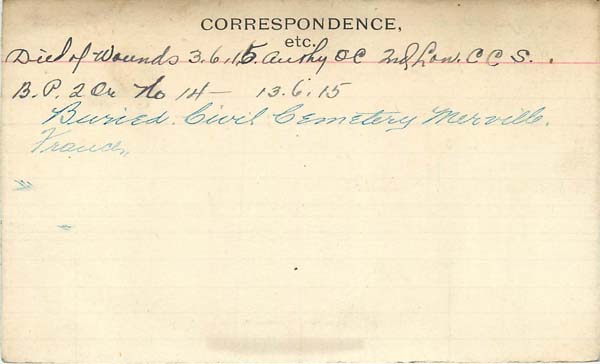 CORRESPONDENCE,
etc.
Died of Wounds 3.6.15. Authy OC 2nd Lon. C C S. .
B.P. 2 Or No 14 — 13.6.15
Buried. Civil Cemetery Merville.
France,